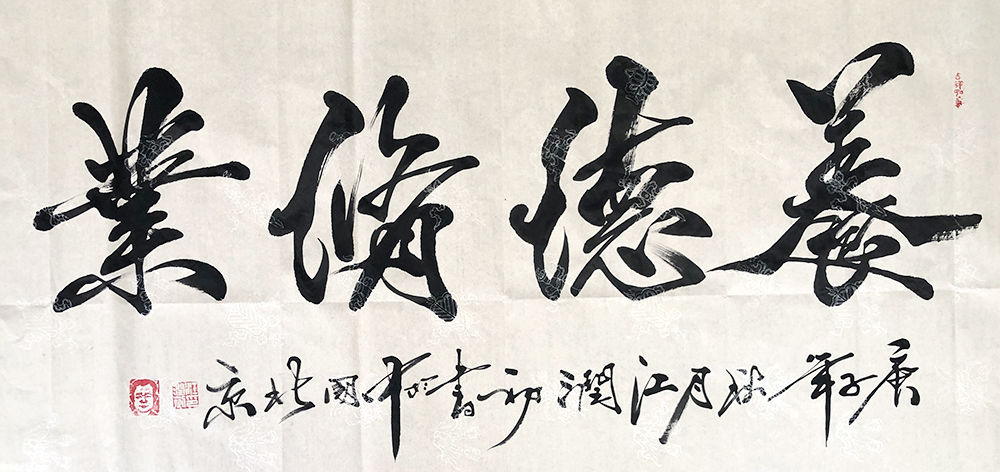 養德脩業
庚子年秋月江潤初書於中國北京